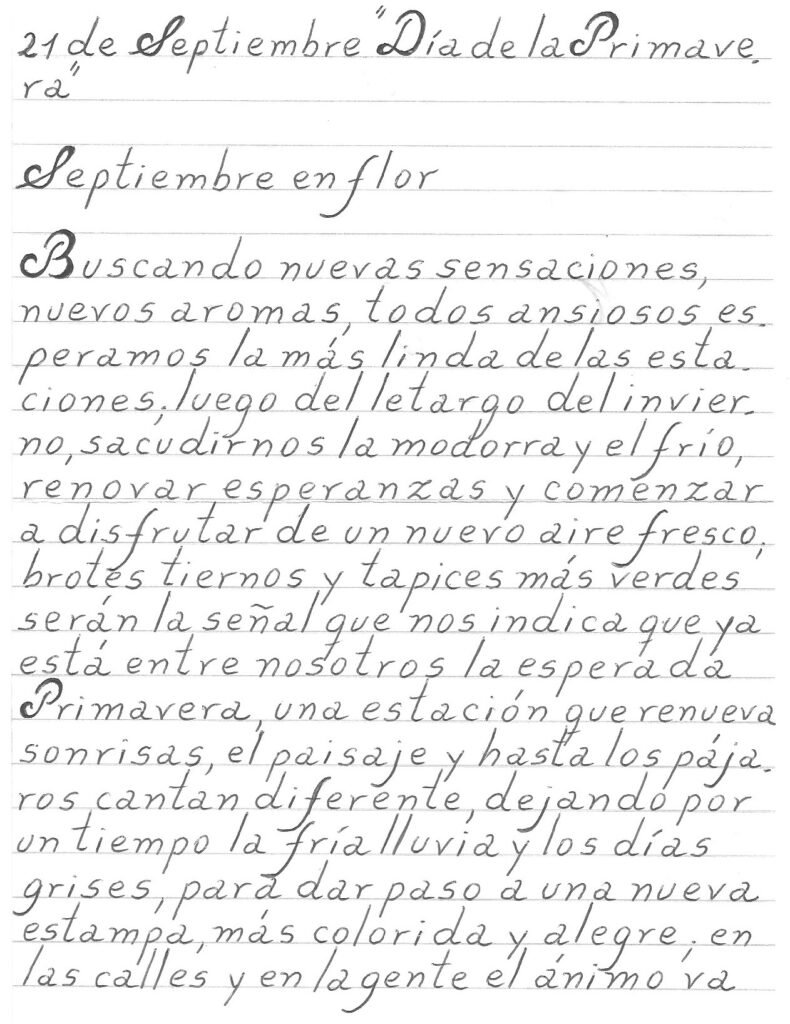 21 de Septiembre "Día de la Primave-
ra"
Septiembre en flor
Buscando nuevas sensaciones,
nuevos aromas, todos ansiosos es-
peramos la más linda de las esta-
ciones; luego del letargo del invier-
no, sacudirnos la modorra y el frío,
renovar esperanzas y comenzar
a disfrutar de un nuevo aire fresco;
brotes tiernos y tapices más verdes
serán la señal que nos indica que ya
está entre nosotros la esperada
Primavera, una estación que renueva
sonrisas, el paisaje y hasta los pája-
ros cantan diferente, dejando por
un tiempo la fría lluvia y los días
grises, para dar paso a una nueva
estampa, más colorida y alegre; en
las calles y en la gente el ánimo va